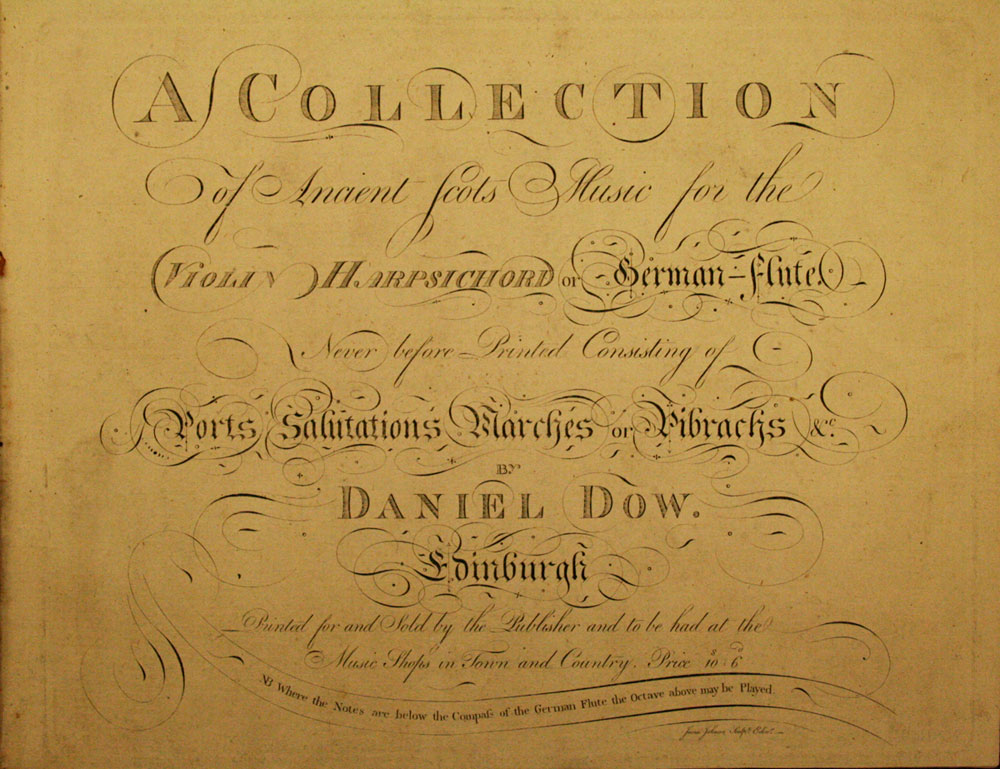 A COLLECTION
of Ancient Scots Music for the
VIOLIN HARPSICHORD or German-flute.
Never before Printed Consisting of
Ports Salutations Marches or Pibrachs &c.
BY
DANIEL DOW.
Edinburgh
Printed for and Sold by the Publisher and to be had at the
Music Shops in Town and Country. Price 10s 6d
NB Where the Notes are below the Compaſs of the German Flute the Octave above may be Played
James Johnson Sculpt. Edinr.